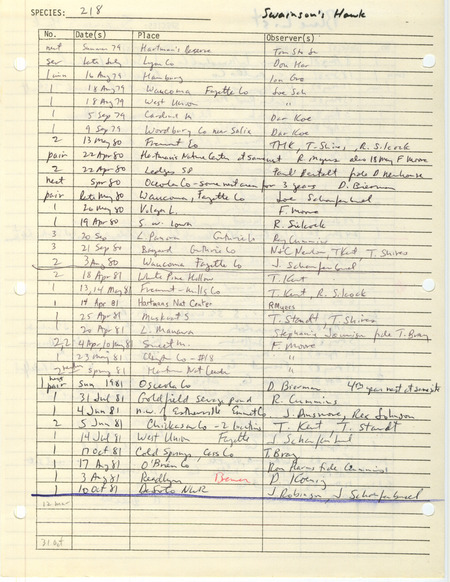 SPECIES: 218 Swainson's Hawk
No. Date(s) Place Observer(s)
nest Summer 79 Hartman's Reserve
Late July Lyon Co Don
1 16 Aug 79 Hamburg
1 18 Aug 79 Waucoma Fayette Co Joe Sch
1 18 Aug 79 West Union "
1 5 Sep 79 Dar Koe
1 9 Sep 79 Woodbury Co near Salix Dar Koe
2 13 May 80 Fremont Co TMK, T. Shires, R. Silcock
pair 22 Apr 80 Hartmans Nature Center R. Myers also 18 May F. Moore
2 22 Apr 80 Ledges SP
nest Spr 80 Osceola Co - same nest area for 3 years D. Bierman
pair late May 80 Waucoma, Fayette Co Joe Schaufenbuel
1 20 May 80 F. Moore
1 19 Apr 80 S.W. Iowa R. Silcock
3 20 Sep L. Panora Guthrie Co Ray Cummins
3 21 Sep 80 Bayard Guthrie Co N+C Newlon, T Kent, T. Shires
2 3 Aug 80 Waucoma Fayette Co J. Schaufenbuel
2 18 Apr 81 White Pine Hollow T. Kent
1 13, 14 May 81 Fremont - Mills Co T. Kent, R. Silcock
1 14 Apr 81 Hartmans Nat Center R Myers
1 25 Apr 81 T. Staudt T. Shires
1 20 Apr 81 L. Manawa Stephanie fide T. Bray
2, 2 4 Apr, 10 May 81 Sweet M. F. Moore
1 23 May 81 Clayton Co - #18 "
2 Spring 81 Hartman Nat Center "
1 nest pair Sum 1981 Osceola D. Bierman 4th year nest at same site
1 31 Jul 81 Goldfield sewage pond R. Cummins
1 4 Jun 81 n.w. of Estherville Emmet Co. J. Dinsmore, Rex Johnson
2 5 Jun 81 Chickasaw Co - 2 locations T. Kent, T. Staudt
1 14 Jul 81 West Union Fayette J Schaufenbuel
1 17 Oct 81 Cold Springs, Cass Co T. Bray
1 17 Aug 81 O'Brien Co Ron Harms fide Cummins
1 3 Aug 81 Readlyn Bremer D. Koenig
1 10 Oct 81 DeSoto NWR J Robinson, J Schaufenbuel
12 Mar
31 Oct